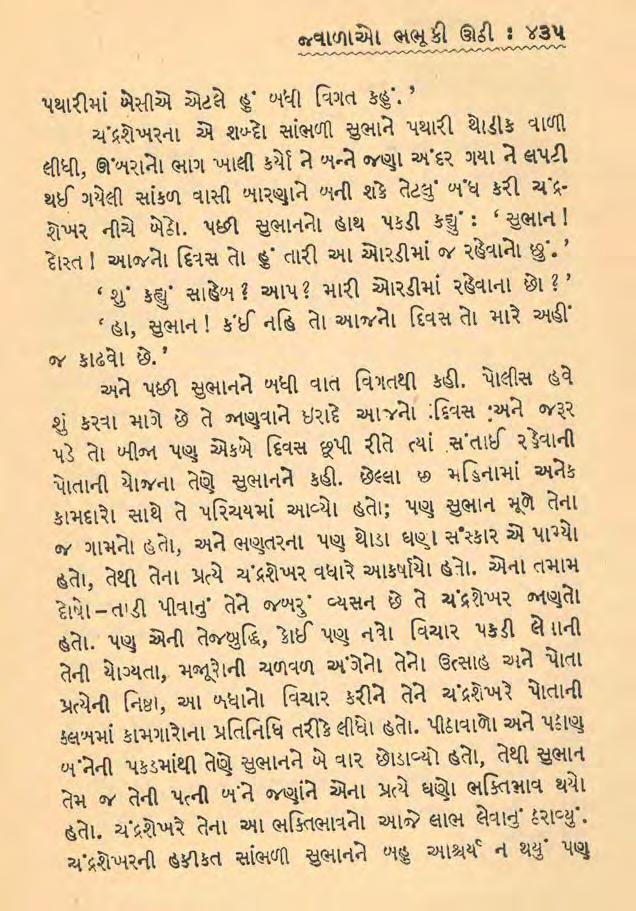 જ્વાળાઓ ભભૂકી ઊઠી : ૪૩૫
પથારીમાં બેસીએ એટલે હું બધી વિગત કહું.’
ચંદ્રશેખરના એ શબ્દો સાંભળી સુભાને પથારી થોડીક વાળી
લીધી, ઊંબરાનો ભાગ ખાલી કર્યો ને બન્ને જણા અંદર ગયા ને લપટી
થઈ ગયેલી સાંકળ વાસી બારણાને બની શકે તેટલું બંધ કરી ચંદ્ર-
શેખર નીચે બેઠો. પછી સુભાનનો હાથ પકડી કહ્યું : ‘ સુભાન !
દોસ્ત ! આજનો દિવસ તો હું તારી આ ઓરડીમાં જ રહેવાનો છું.’
‘ શું કહ્યું સાહેબ ? આપ ? મારી ઓરડીમાં રહેવાના છો ? ’
‘ હા, સુભાન ! કંઈ નહિ તો આજનો દિવસ તો મારે અહીં
જ કાઢવો છે.’
અને પછી સુભાનને બધી વાત વિગતથી કહી. પોલીસ હવે
શું કરવા માગે છે તે જાણવાને ઇરાદે આજનો દિવસ અને જરૂર
પડે તો બીજા પણ એકબે દિવસ છૂપી રીતે ત્યાં સંતાઈ રહેવાની
પોતાની યોજના તેણે સુભાનને કહી. છેલ્લા છ મહિનામાં અનેક
કામદારો સાથે તે પરિચયમાં આવ્યો હતો; પણ સુભાન મૂળે તેના
જ ગામનો હતો, અને ભણતરના પણ થોડા ઘણા સંસ્કાર એ પામ્યો
હતો, તેથી તેના પ્રત્યે ચંદ્રશેખર વધારે આકર્ષાયો હતો. એના તમામ
દોષો – તાડી પીવાનું તેને જબરું વ્યસન છે તે ચંદ્રશેખર જાણતો
હતો. પણ એની તેજબુદ્ધિ, કોઈ પણ નવો વિચાર પકડી લેવાની
તેની યોગ્યતા, મજૂરોની ચળવળ અંગેનો તેનો ઉત્સાહ અને પોતા
પ્રત્યેની નિષ્ઠા, આ બધાનો વિચાર કરીને તેને ચંદ્રશેખરે પોતાની
ક્લબમાં કામગારોના પ્રતિનિધિ તરીકે લીધો હતો. પીઠાવાળો અને પઠાણ
બંનેની પકડમાંથી તેણે સુભાનને બે વાર છોડાવ્યો હતો, તેથી સુભાન
તેમ જ તેની પત્ની બંને જણાંને એના પ્રત્યે ઘણો ભક્તિભાવ થયો
હતો. ચંદ્રશેખરે તેના આ ભક્તિભાવનો આજે લાભ લેવાનું ઠરાવ્યું.
ચંદ્રશેખરની હકીકત સાંભળી સુભાનને બહુ આશ્ચર્ય ન થયું પણ